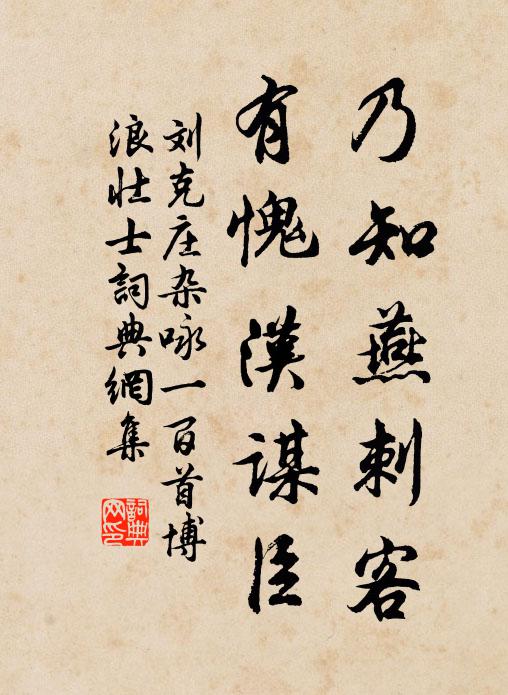 乃知燕刺客
有愧漢謀臣
刘克庄杂咏一百首博
浪壮士詞典網集
詞典
网印